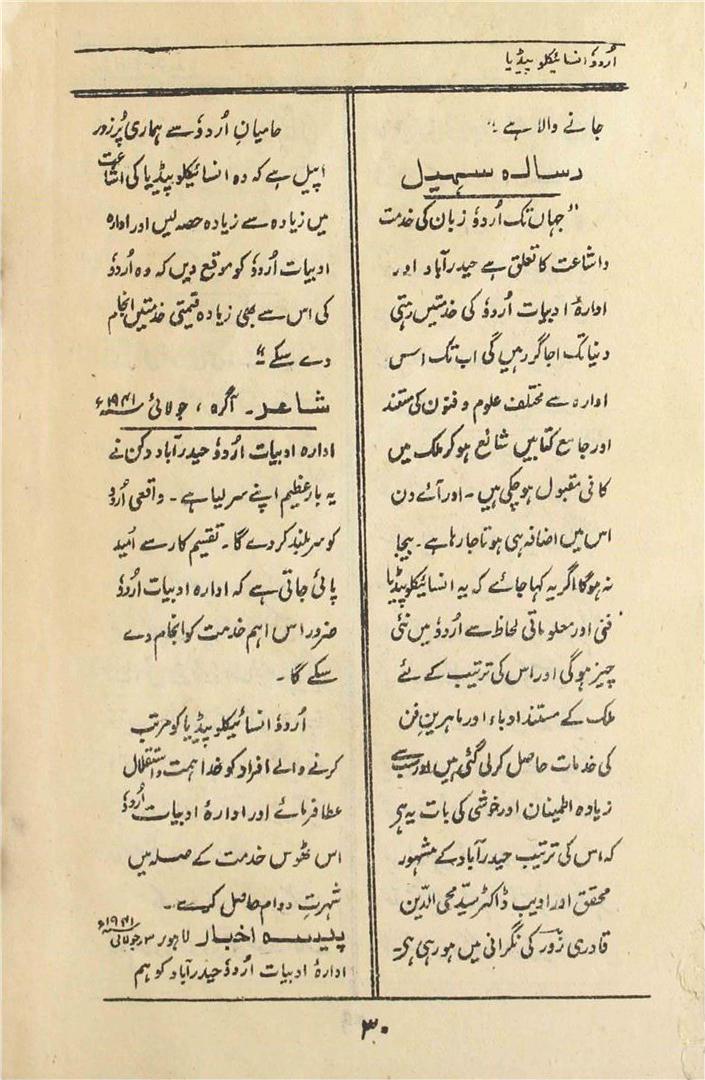 اُردوٗ انسائیکلوپیڈیا
جانے والا ہے "
رسالہ سہیل
" جہاں تک اُردوٗ زبان کی خدمت
و اشاعت کا تعلق ہے حیدرآباد اور
ادارۂ ادبیات اُردوٗ کی خدمتیں رہتی
دنیا تک اجاگر رہیں گی اب تک اس
ادارہ سے مختلف علوم و فنون کی مستند
اور جامع کتابیں شائع ہو کر ملک میں
کافی مقبول ہو چکی ہیں۔ اور آئے دن
اس میں اضافہ ہی ہوتا جا رہا ہے۔ بیجا
نہ ہوگا اگر یہ کہا جائے کہ یہ انسائیکلوپیڈیا
فنی اور معلوماتی لحاظ سے اُردوٗ میں نئی
چیز ہوگی اور اس کی ترتیب کے لئے
ملک کے مستند ادباء اور ماہرینِ فن
کی خدمات حاصل کر لی گئی ہیں اور سب سے
زیادہ اطمینان اور خوشی کی بات یہ ہر
کہ اس کی ترتیب حیدرآباد کے مشہور
محقق اور ادیب ڈاکٹر سیّد محی الدّین
قادری زوٗر کی نگرانی میں ہو رہی ہر۔
حامیانِ اُردوٗ سے ہماری پُر زور
اپیل ہے کہ وہ انسائیکلوپیڈیا کی اشاعت
میں زیادہ سے زیادہ حصہ لیں اور ادارہ
ادبیات اُردوٗ کو موقع دیں کہ وہ اُردوٗ
کی اس سے بھی زیادہ قیمتی خدمتیں انجام
دے سکے "
شاعر۔ آگرہ ، جولائی ۱۹۴۱ء
ادارہ ادبیات اُردوٗ حیدرآباد دکن نے
یہ بار عظیم اپنے سر لیا ہے۔ واقعی اُردو
کو سربلند کر دے گا۔ تقسیم کار سے اُمید
پائی جاتی ہے کہ ادارہ ادبیات اُردوٗ
ضرور اس اہم خدمت کو انجام دے
سکے گا۔
اُردوٗ انسائیکلوپیڈیا کو مرتب
کرنے والے افراد کو خدا ہمت و استقلال
عطا فرمائے اور ادارۂ ادبیات اُردوٗ
اس ٹھوس خدمت کے صلہ میں
شہرتِ دوام حاصل کرے۔
پیسہ اخبار لاہور ۳ جولائی ۱۹۴۱ء
ادارۂ ادبیات اُردوٗ حیدرآباد کو ہم
۳۰